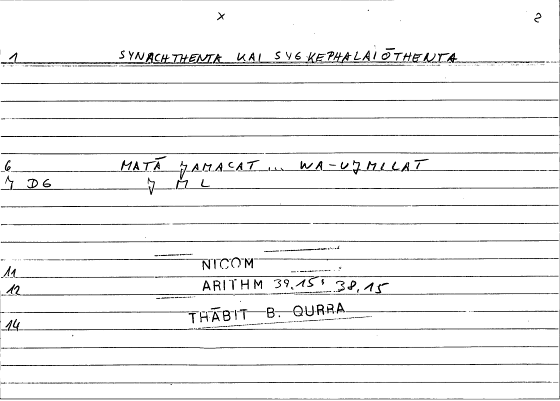 x 2
1 SYNACHTHENTA KAI SYGKEPHALAIŌTHENTA
6 MATĀ JAMACAT ... WA-UJMILAT
7 DG J M L
11 NICOM
12 ARITHM 39.15; 38.15
14 THĀBIT B. QURRA